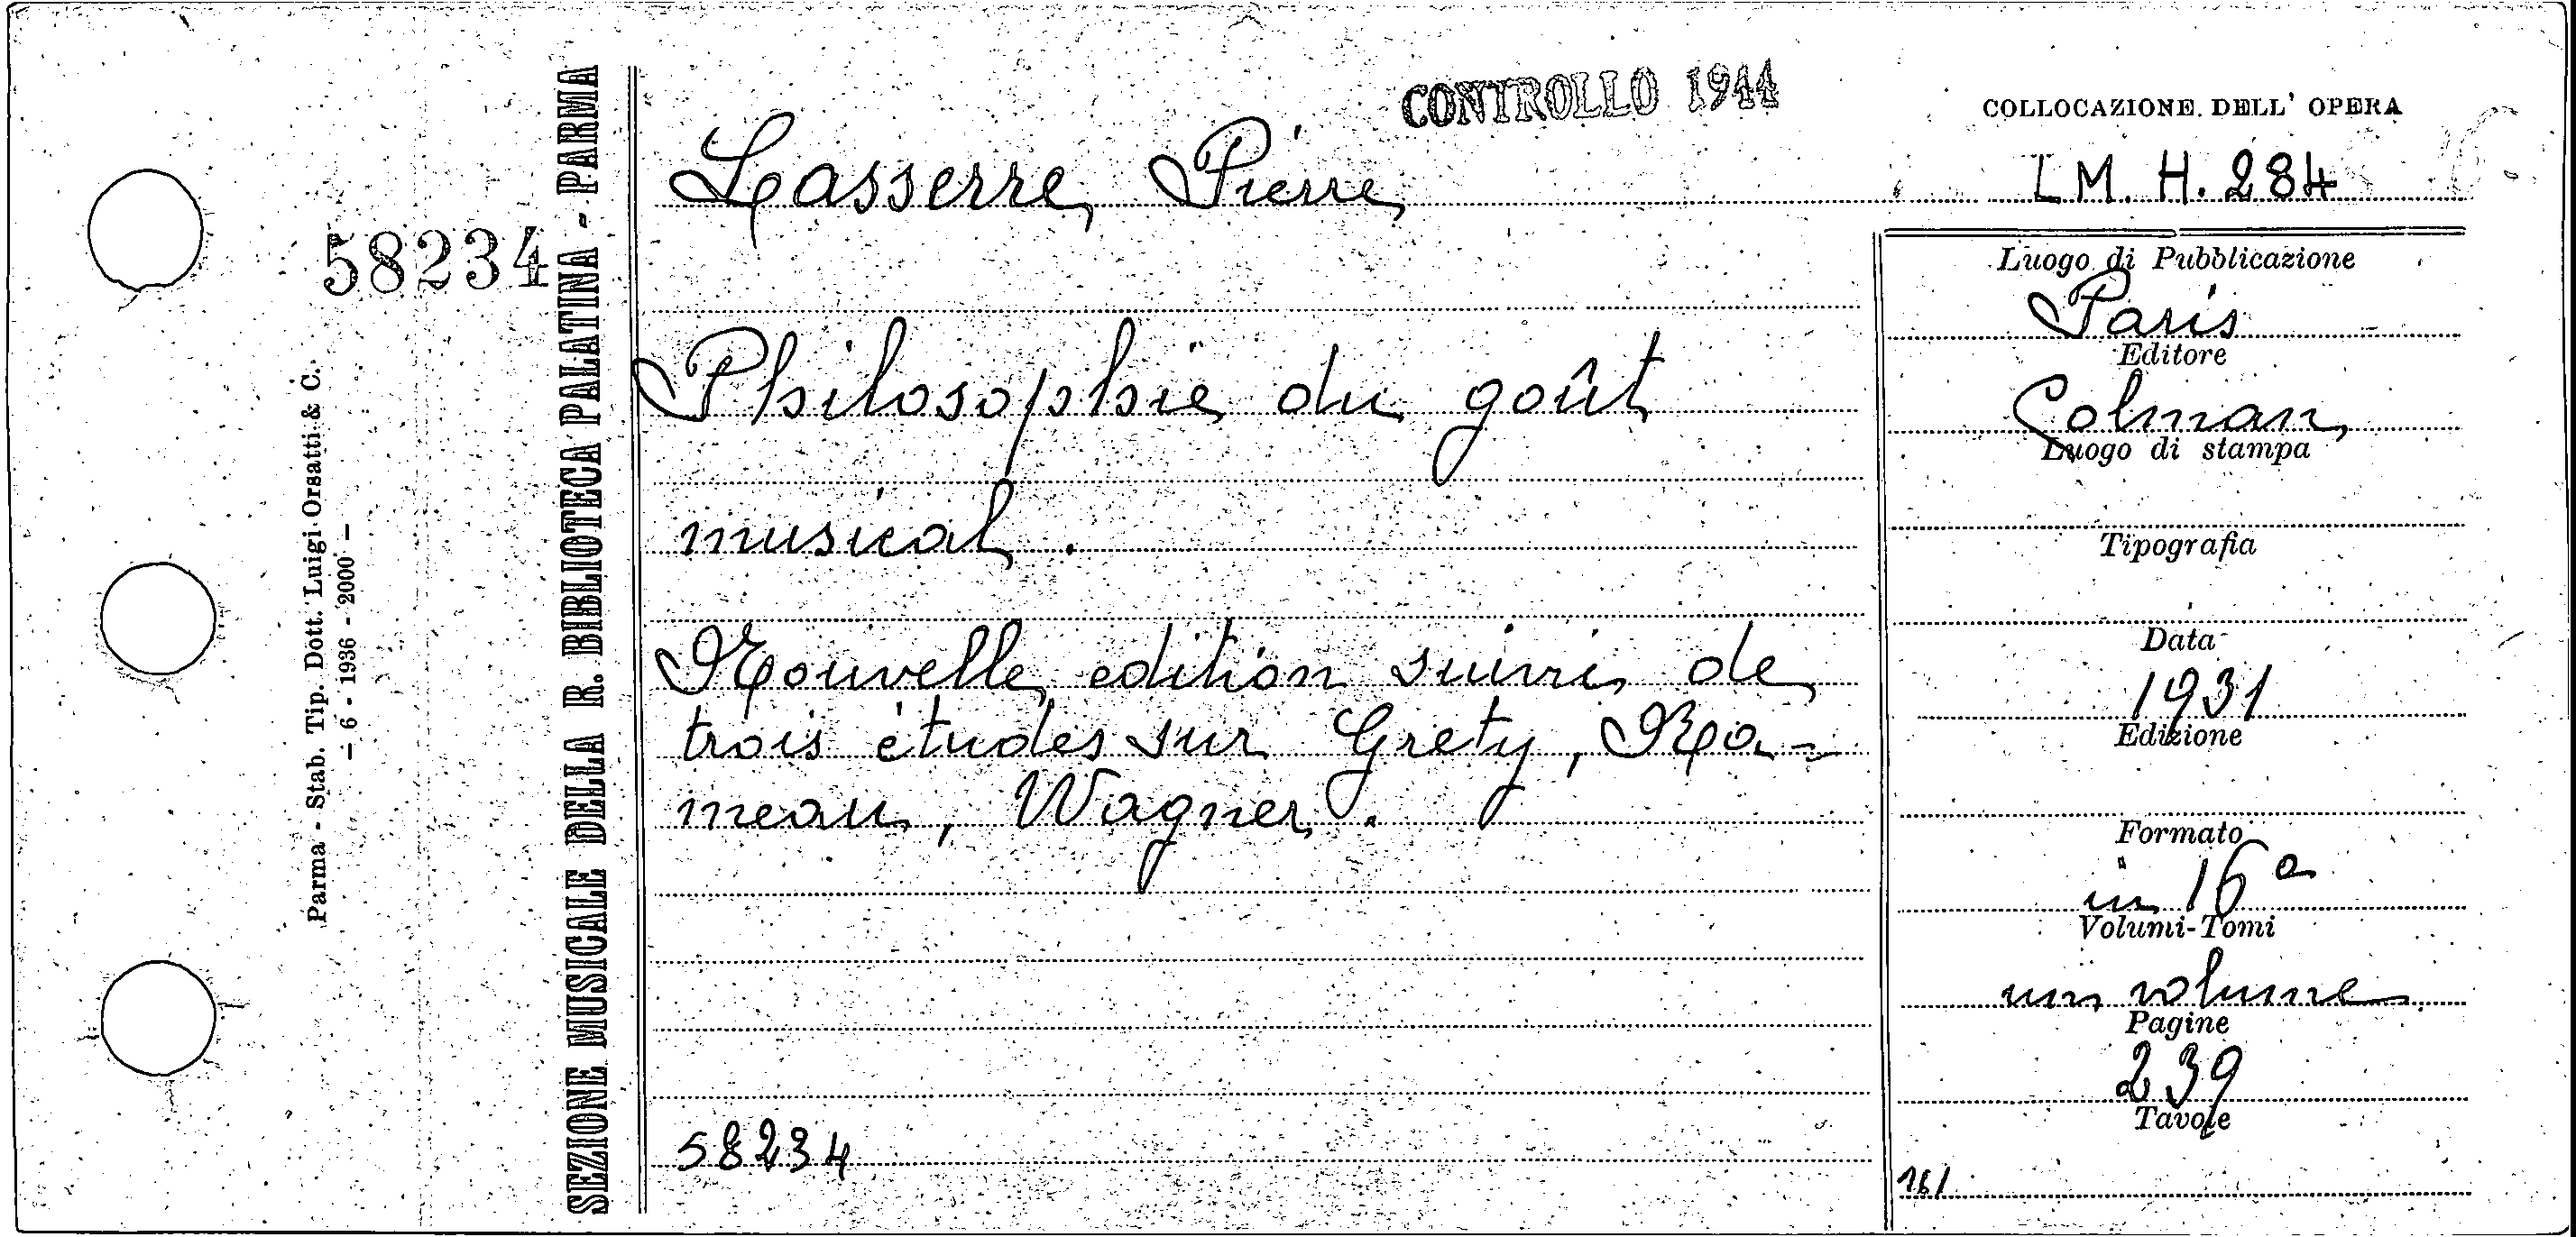 CONTROLLO 1944
COLLOCAZIONE DELL' OPERA
L M. H. 284
Lasserre Pierre
58234
Parma - Stab. Tip. Dott. Luigi Orsatti & C.
— 6 - 1936 - 2000 —
SEZIONE MUSICALE DELLA R. BIBLIOTECA PALATINA - PARMA
Philosophie du goût
musical.
Nouvelle edition suivie de
trois études sur Grety, Ra-
meau, Wagner.
58234
Luogo di Pubblicazione
Paris
Editore
Colman
Luogo di stampa
Tipografia
Data
1931
Edizione
Formato
in 16°
Volumi-Tomi
un volume
Pagine
239
Tavole
161